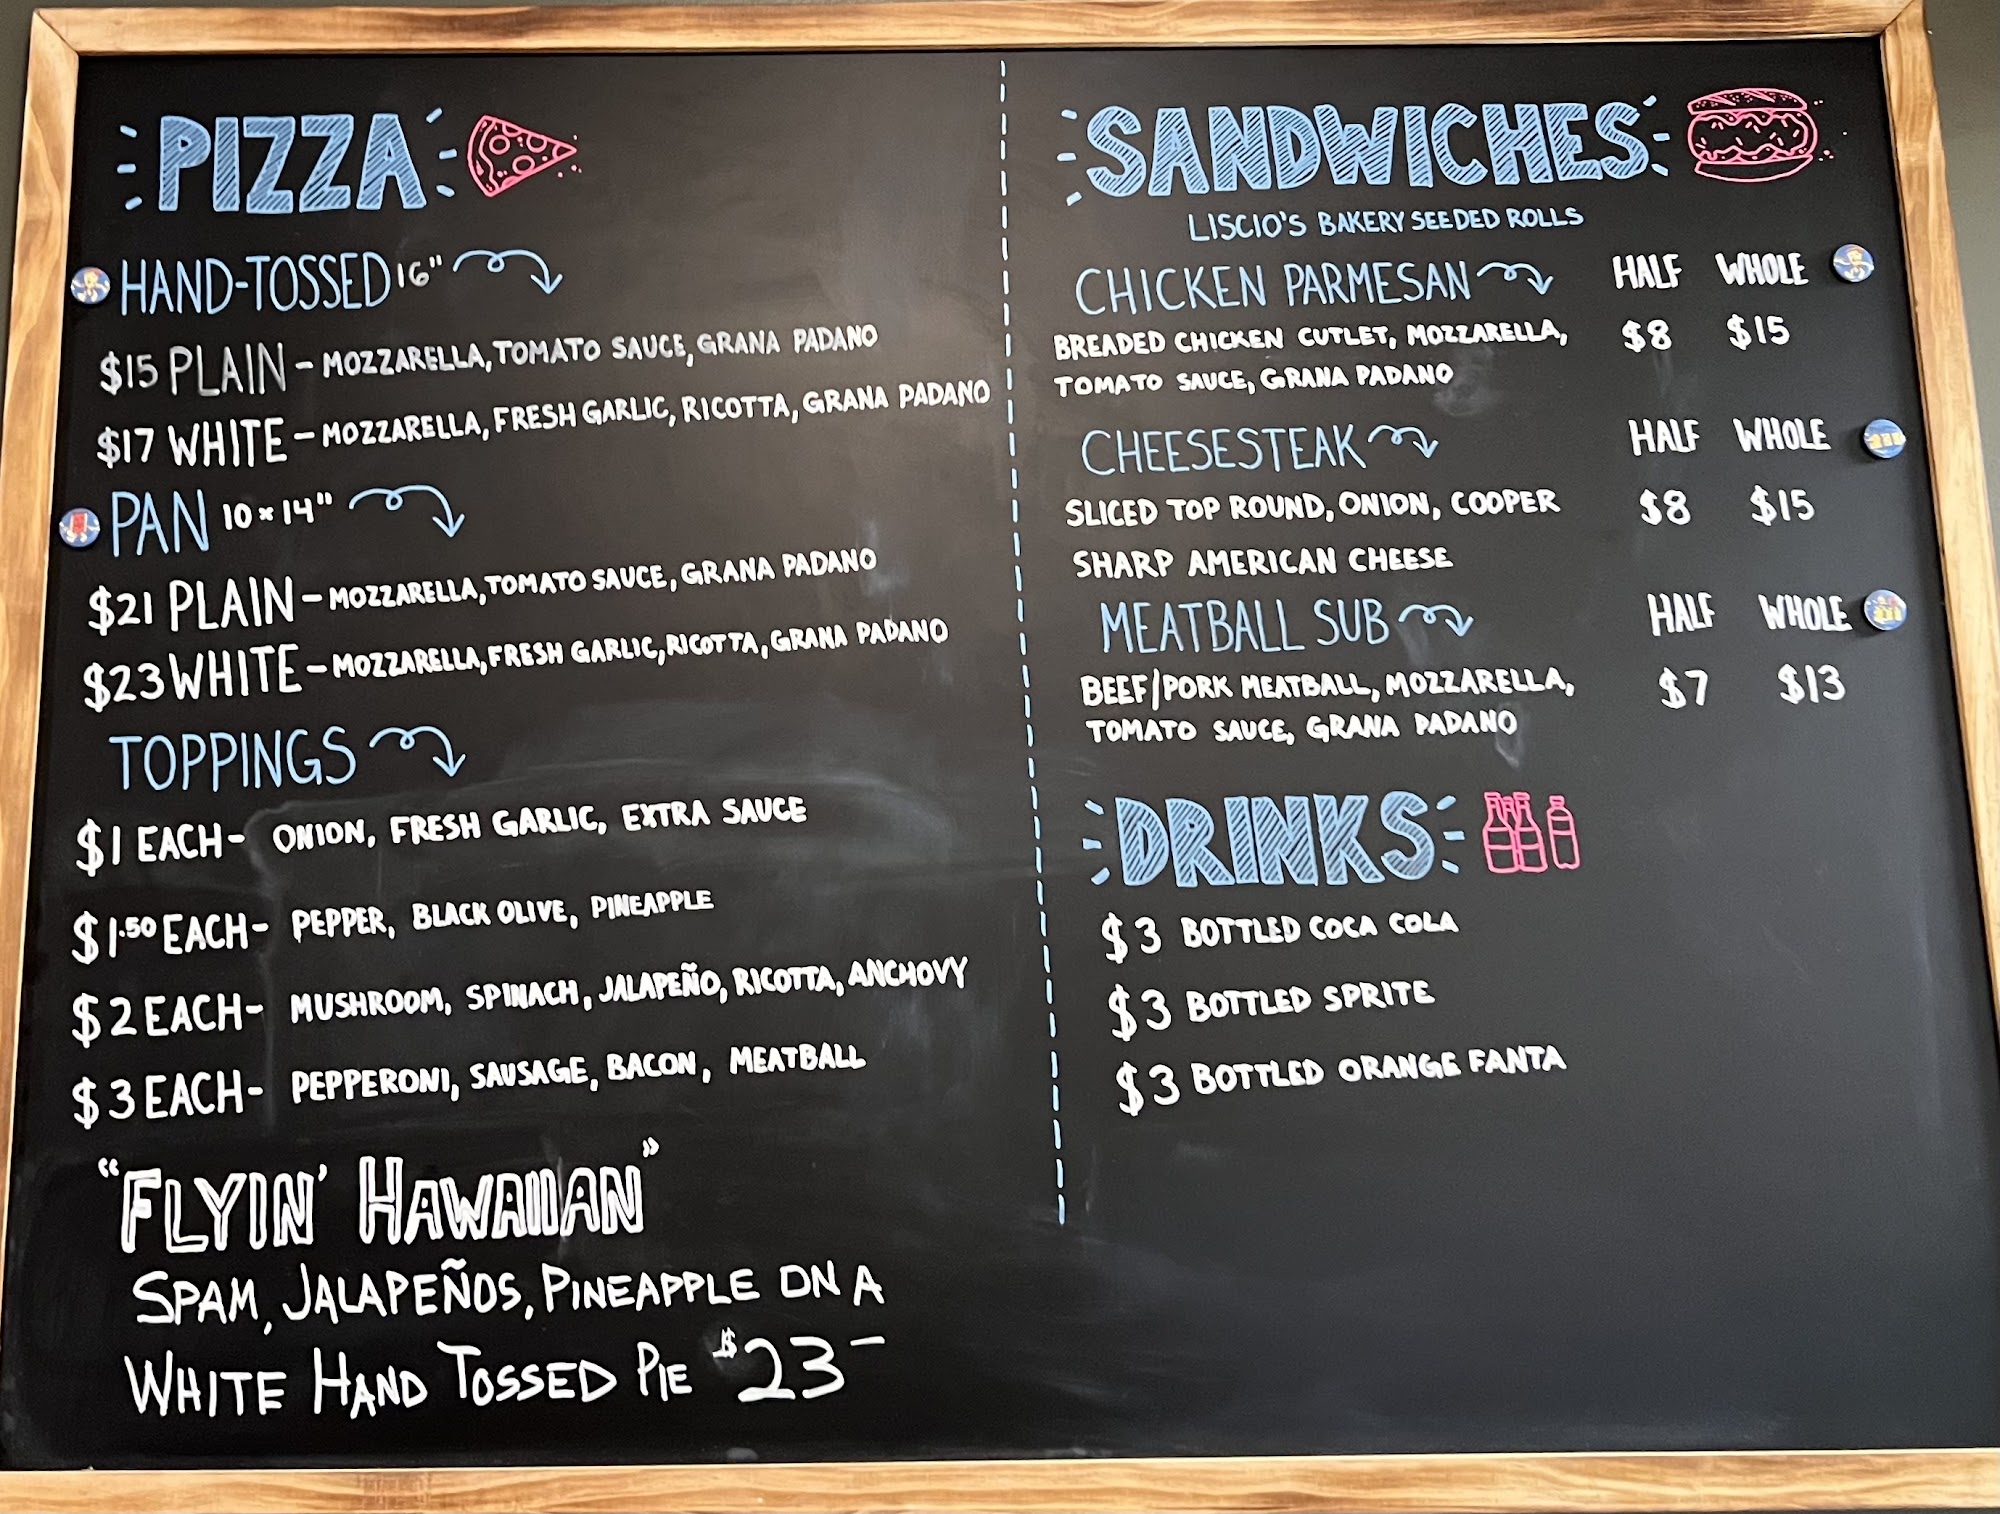 PIZZA
HAND-TOSSED 16"
$15 PLAIN - MOZZARELLA, TOMATO SAUCE, GRANA PADANO
$17 WHITE - MOZZARELLA, FRESH GARLIC, RICOTTA, GRANA PADANO
PAN 10 x 14"
$21 PLAIN - MOZZARELLA, TOMATO SAUCE, GRANA PADANO
$23 WHITE - MOZZARELLA, FRESH GARLIC, RICOTTA, GRANA PADANO
TOPPINGS
$1 EACH - ONION, FRESH GARLIC, EXTRA SAUCE
$1.50 EACH - PEPPER, BLACK OLIVE, PINEAPPLE
$2 EACH - MUSHROOM, SPINACH, JALAPEÑO, RICOTTA, ANCHOVY
$3 EACH - PEPPERONI, SAUSAGE, BACON, MEATBALL
"FLYIN' HAWAIIAN"
SPAM, JALAPEÑOS, PINEAPPLE ON A
WHITE HAND TOSSED PIE $23-
SANDWICHES
LISCIO'S BAKERY SEEDED ROLLS
CHICKEN PARMESAN HALF WHOLE
BREADED CHICKEN CUTLET, MOZZARELLA, $8 $15
TOMATO SAUCE, GRANA PADANO
CHEESESTEAK HALF WHOLE
SLICED TOP ROUND, ONION, COOPER $8 $15
SHARP AMERICAN CHEESE
MEATBALL SUB HALF WHOLE
BEEF/PORK MEATBALL, MOZZARELLA, $7 $13
TOMATO SAUCE, GRANA PADANO
DRINKS
$3 BOTTLED COCA COLA
$3 BOTTLED SPRITE
$3 BOTTLED ORANGE FANTA